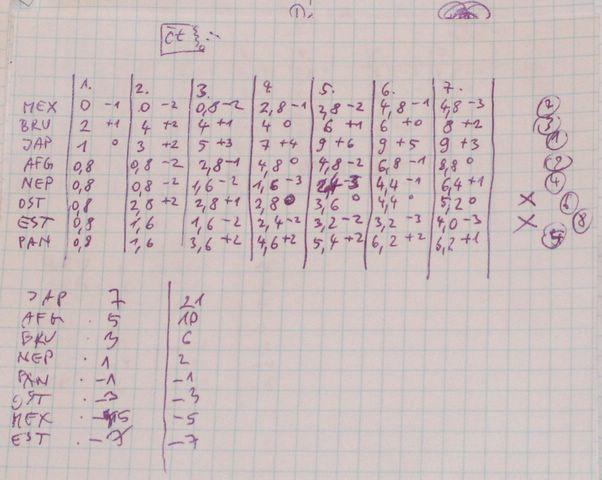 1.
1. 2. 3. 4. 5. 6. 7.
MEX 0 -1 0 -2 0,8 -2 2,8 -1 2,8 -2 4,8 -1 4,8 -3
BRU 2 +1 4 +2 4 +1 4 0 6 +1 6 +0 8 +2 3
JAP 1 0 3 +2 5 +3 7 +4 9 +6 9 +5 9 +3 1
AFG 0,8 0,8 -2 2,8 -1 4,8 0 4,8 -2 6,8 -1 8,8 0 2
NEP 0,8 0,8 -2 1,6 -2 1,6 -3 -3 4,4 -1 6,4 +1 4
OST 0,8 2,8 +2 2,8 +1 2,8 0 3,6 0 4,4 0 5,2 0 X 6
EST 0,8 1,6 1,6 -2 2,4 -2 3,2 -2 3,2 -3 4,0 -3 X 8
PAN 0,8 1,6 3,6 +2 4,6 +2 5,4 +2 6,2 +2 6,2 +1 5
JAP 7 21
AFG 5 10
BRU 3 6
NEP 1 2
PAN -1 -1
OST -3 -3
MEX -5
EST -7 -7